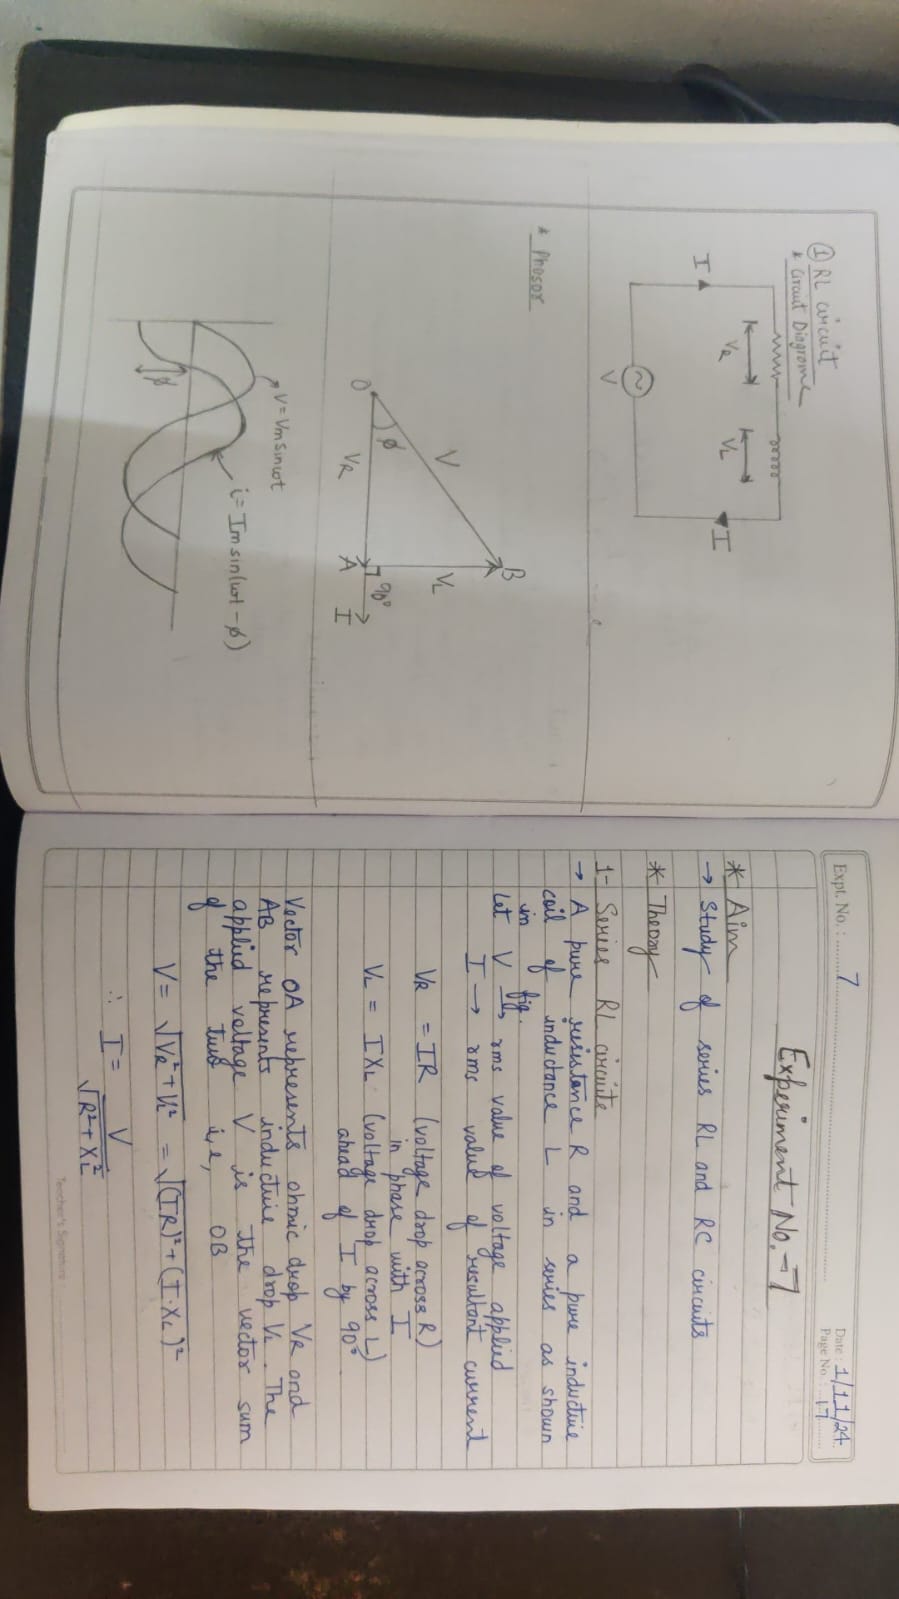 ① RL circuit
* Circuit Diagrame
I
VR
VL
I
V
* Phasor
B
V
VL
O
ϕ
90°
VR
A
I
V=Vmsinωt
i=Imsin(ωt-ϕ)
ϕ
Expt. No. : 7
Date : 1/11/24
Page No. : 17
Experiment No.-7
* Aim
→ Study of series RL and RC circuits
* Theory
1- Series RL circuite
→ A pure resistance R and a pure inductive
coil of inductance L in series as shown
in fig.
Let V → rms value of voltage applied
I → rms value of resultant current
VR = IR (voltage drop across R)
in phase with I
VL = IXL. (voltage drop across L)
ahead of I by 90°
Vector OA represents ohmic drop VR and
AB represents inductive drop VL. The
applied voltage V is the vector sum
of the two i,e, OB
V= √VR²+VL² = √(IR)²+(I·XL)²
∴ I = V / √R²+XL²
Teacher's Signature